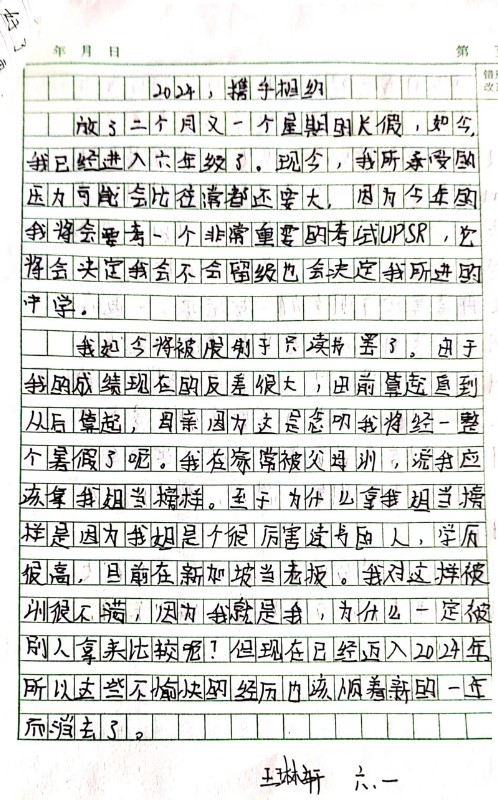 年 月 日
第
2024，携手相约
放了二个月又一个星期的长假，如今，
我已经进入六年级了。现今，我所承受的
压力可能会比往常都还要大，因为今年的
我将会要考一个非常重要的考试UPSR，它
将会决定我会不会留级也会决定我所进的
中学。
我如今将被限制于只读书罢了。由于
我的成绩现在的反差很大，由前算起直到
从后算起，母亲因为这是念叨我将经一整
个暑假了呢。我在家常被父母训，说我应
该拿我姐当榜样。至于为什么拿我姐当榜
样是因为我姐是个很厉害读书的人，学历
很高，目前在新加坡当老板。我对这样被
训很不满，因为我就是我，为什么一定被
别人拿来比较呢？但现在已经迈入2024年
所以这些不愉快的经历也该顺着新的一年
而消去了。
王琳轩 六.一